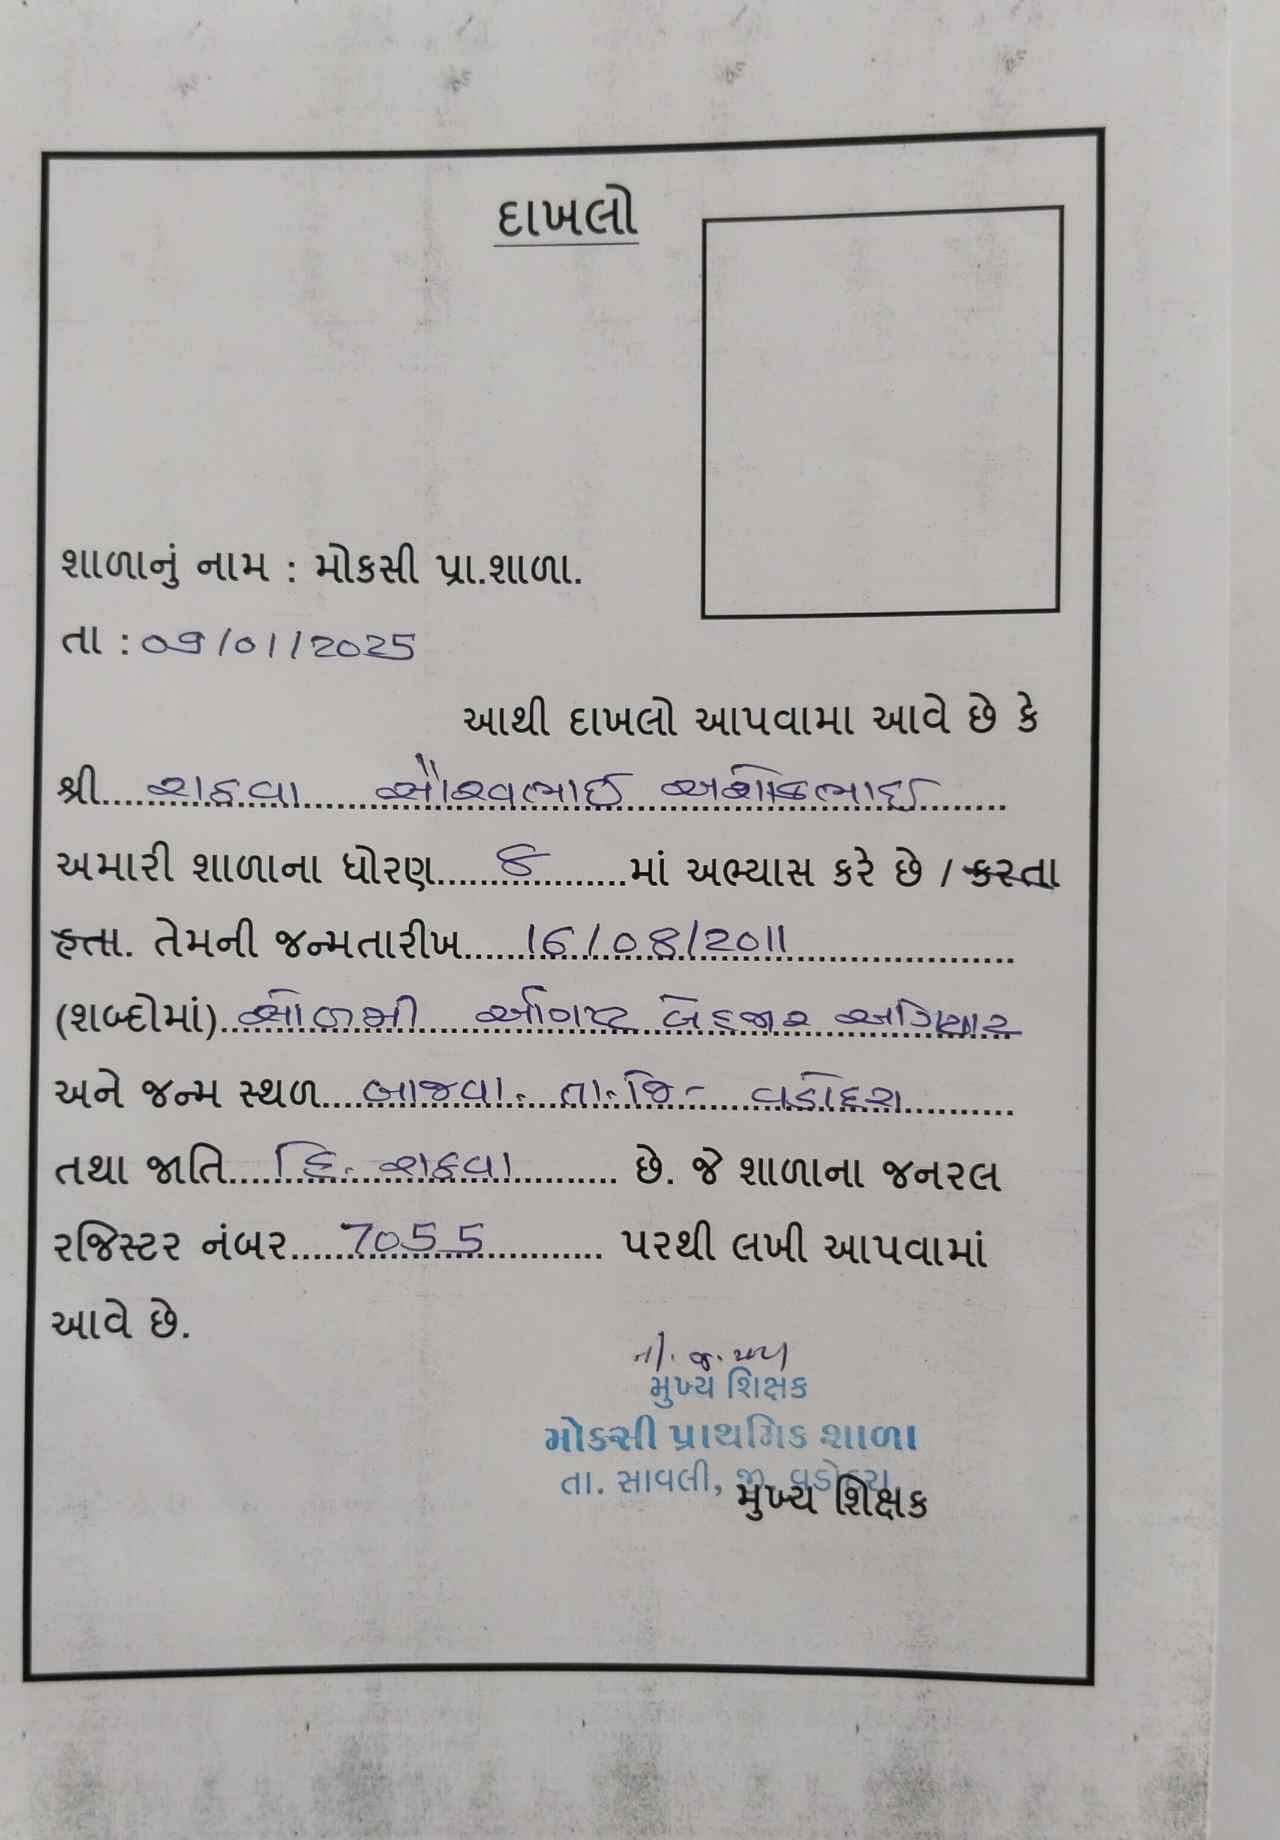 દાખલો
શાળાનું નામ : મોકસી પ્રા.શાળા.
તા : 09/01/2025
આથી દાખલો આપવામા આવે છે કે
શ્રી.... રાઠવા સૌરવભાઈ અશોકભાઈ ........
અમારી શાળાના ધોરણ.... 8 ....માં અભ્યાસ કરે છે / કરતા
હતા. તેમની જન્મતારીખ.... 16/08/2011 ....
(શબ્દોમાં).. સોળમી ઓગષ્ટ બેહજાર અગિયાર
અને જન્મ સ્થળ.... બાજવા. તા.જિ- વડોદરા ....
તથા જાતિ.... હિ. રાઠવા .... છે. જે શાળાના જનરલ
રજિસ્ટર નંબર.... 7055 .... પરથી લખી આપવામાં
આવે છે.
મુખ્ય શિક્ષક
મોકસી પ્રાથમિક શાળા
તા. સાવલી, જી. વડોદરા
મુખ્ય શિક્ષક